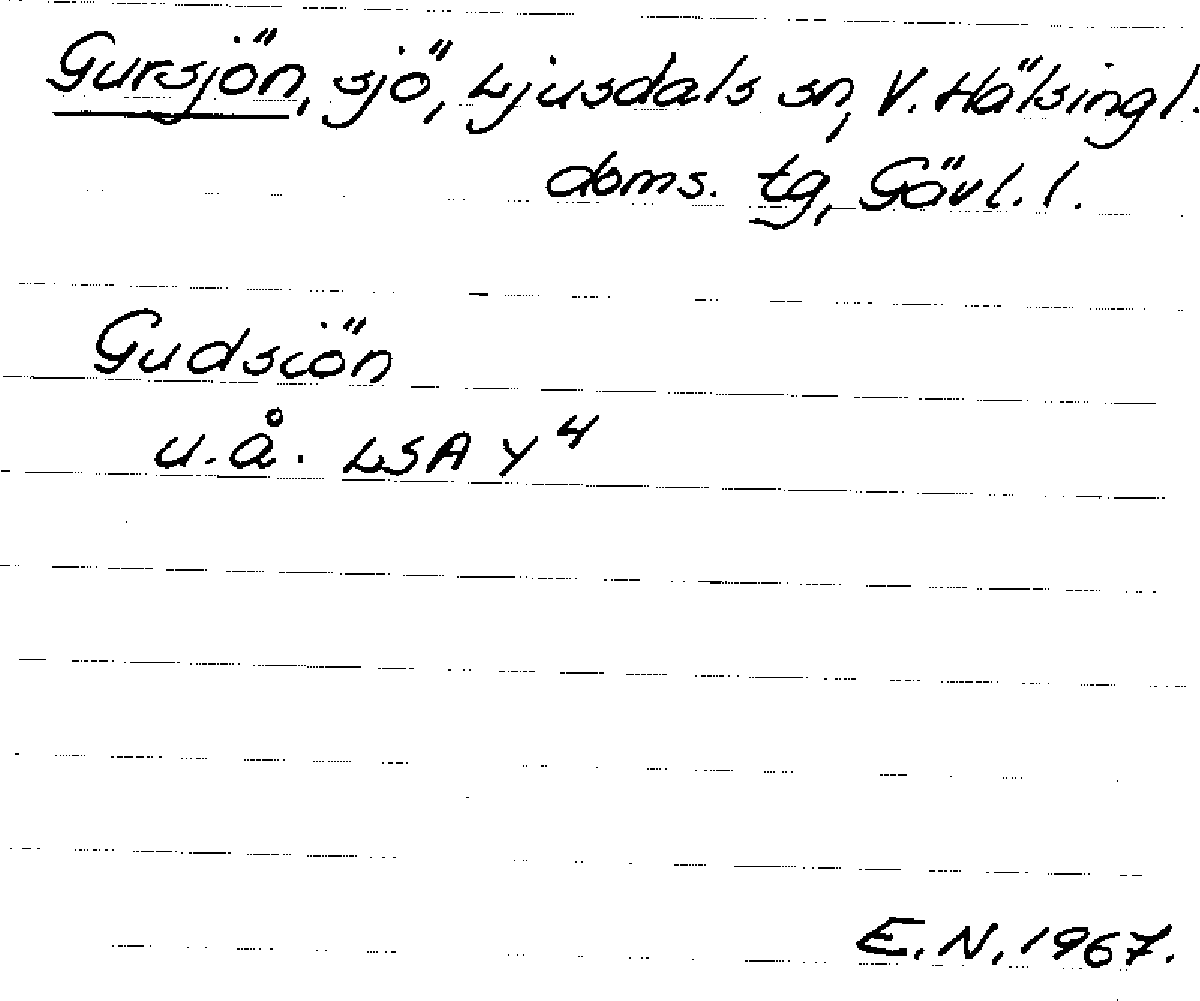 Gursjön, sjö, Ljusdals sn, V. Hälsingl.
doms. tg, Gävl. l.
Gudsiön
u.å. LSA Y4
E.N. 1967.